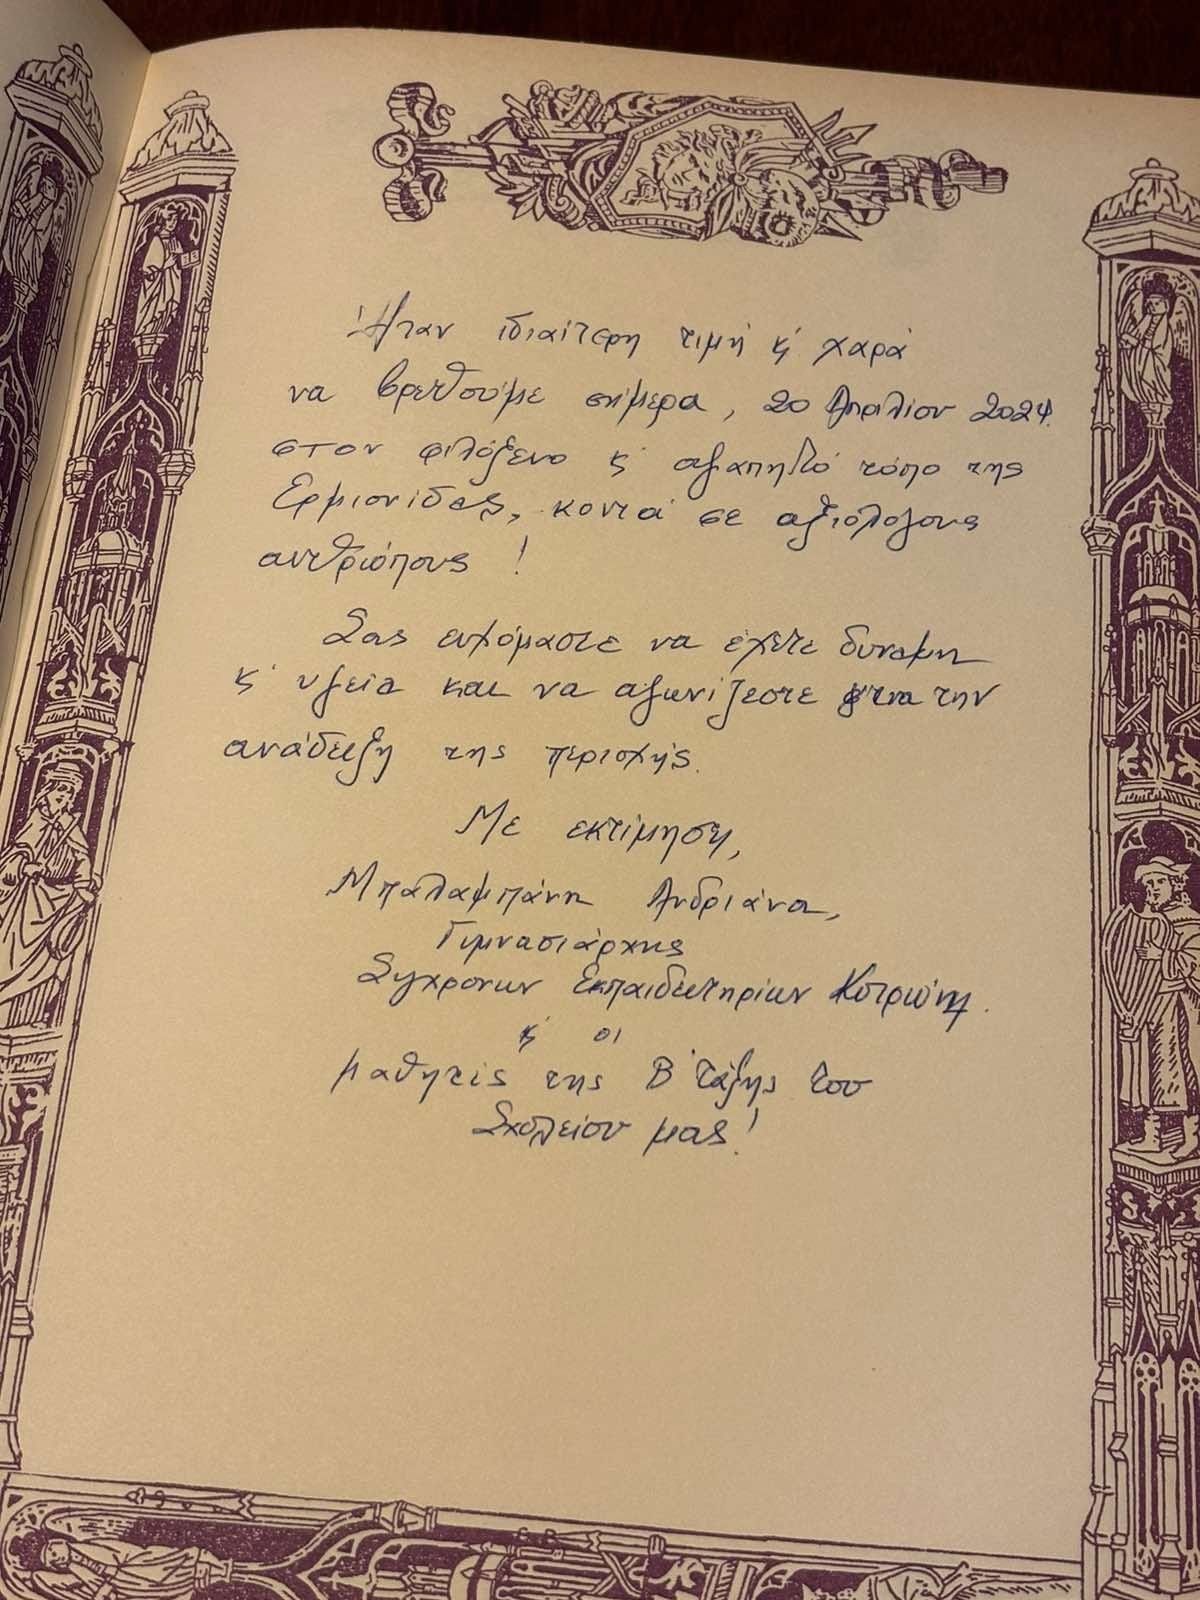 Ήταν ιδιαίτερη τιμή κ' χαρά
να βρεθούμε σήμερα, 20 Απριλίου 2024
στον φιλόξενο κ' αγαπητό τόπο της
Ερμιονίδας, κοντά σε αξιόλογους
ανθρώπους !
Σας ευχόμαστε να έχετε δύναμη
κ' υγεία και να αγωνίζεστε για την
ανάδειξη της περιοχής.
Με εκτίμηση,
Μπαλαμπάνη Ανδριάνα,
Γυμνασιάρχης
Σύγχρονων Εκπαιδευτηρίων Κοτρώνη.
κ' οι
μαθητές της Β' τάξης του
Σχολείου μας!